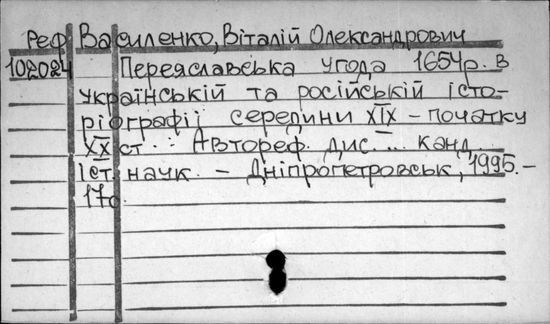 Реф Василенко, Віталій Олександрович
102024 Переяславська угода 1654р. в
українській та російській істо-
ріографії середини XIX – початку
XX ст. : Автореф. дис ... канд.
іст. наук. – Дніпропетровськ, 1995. –
17с.